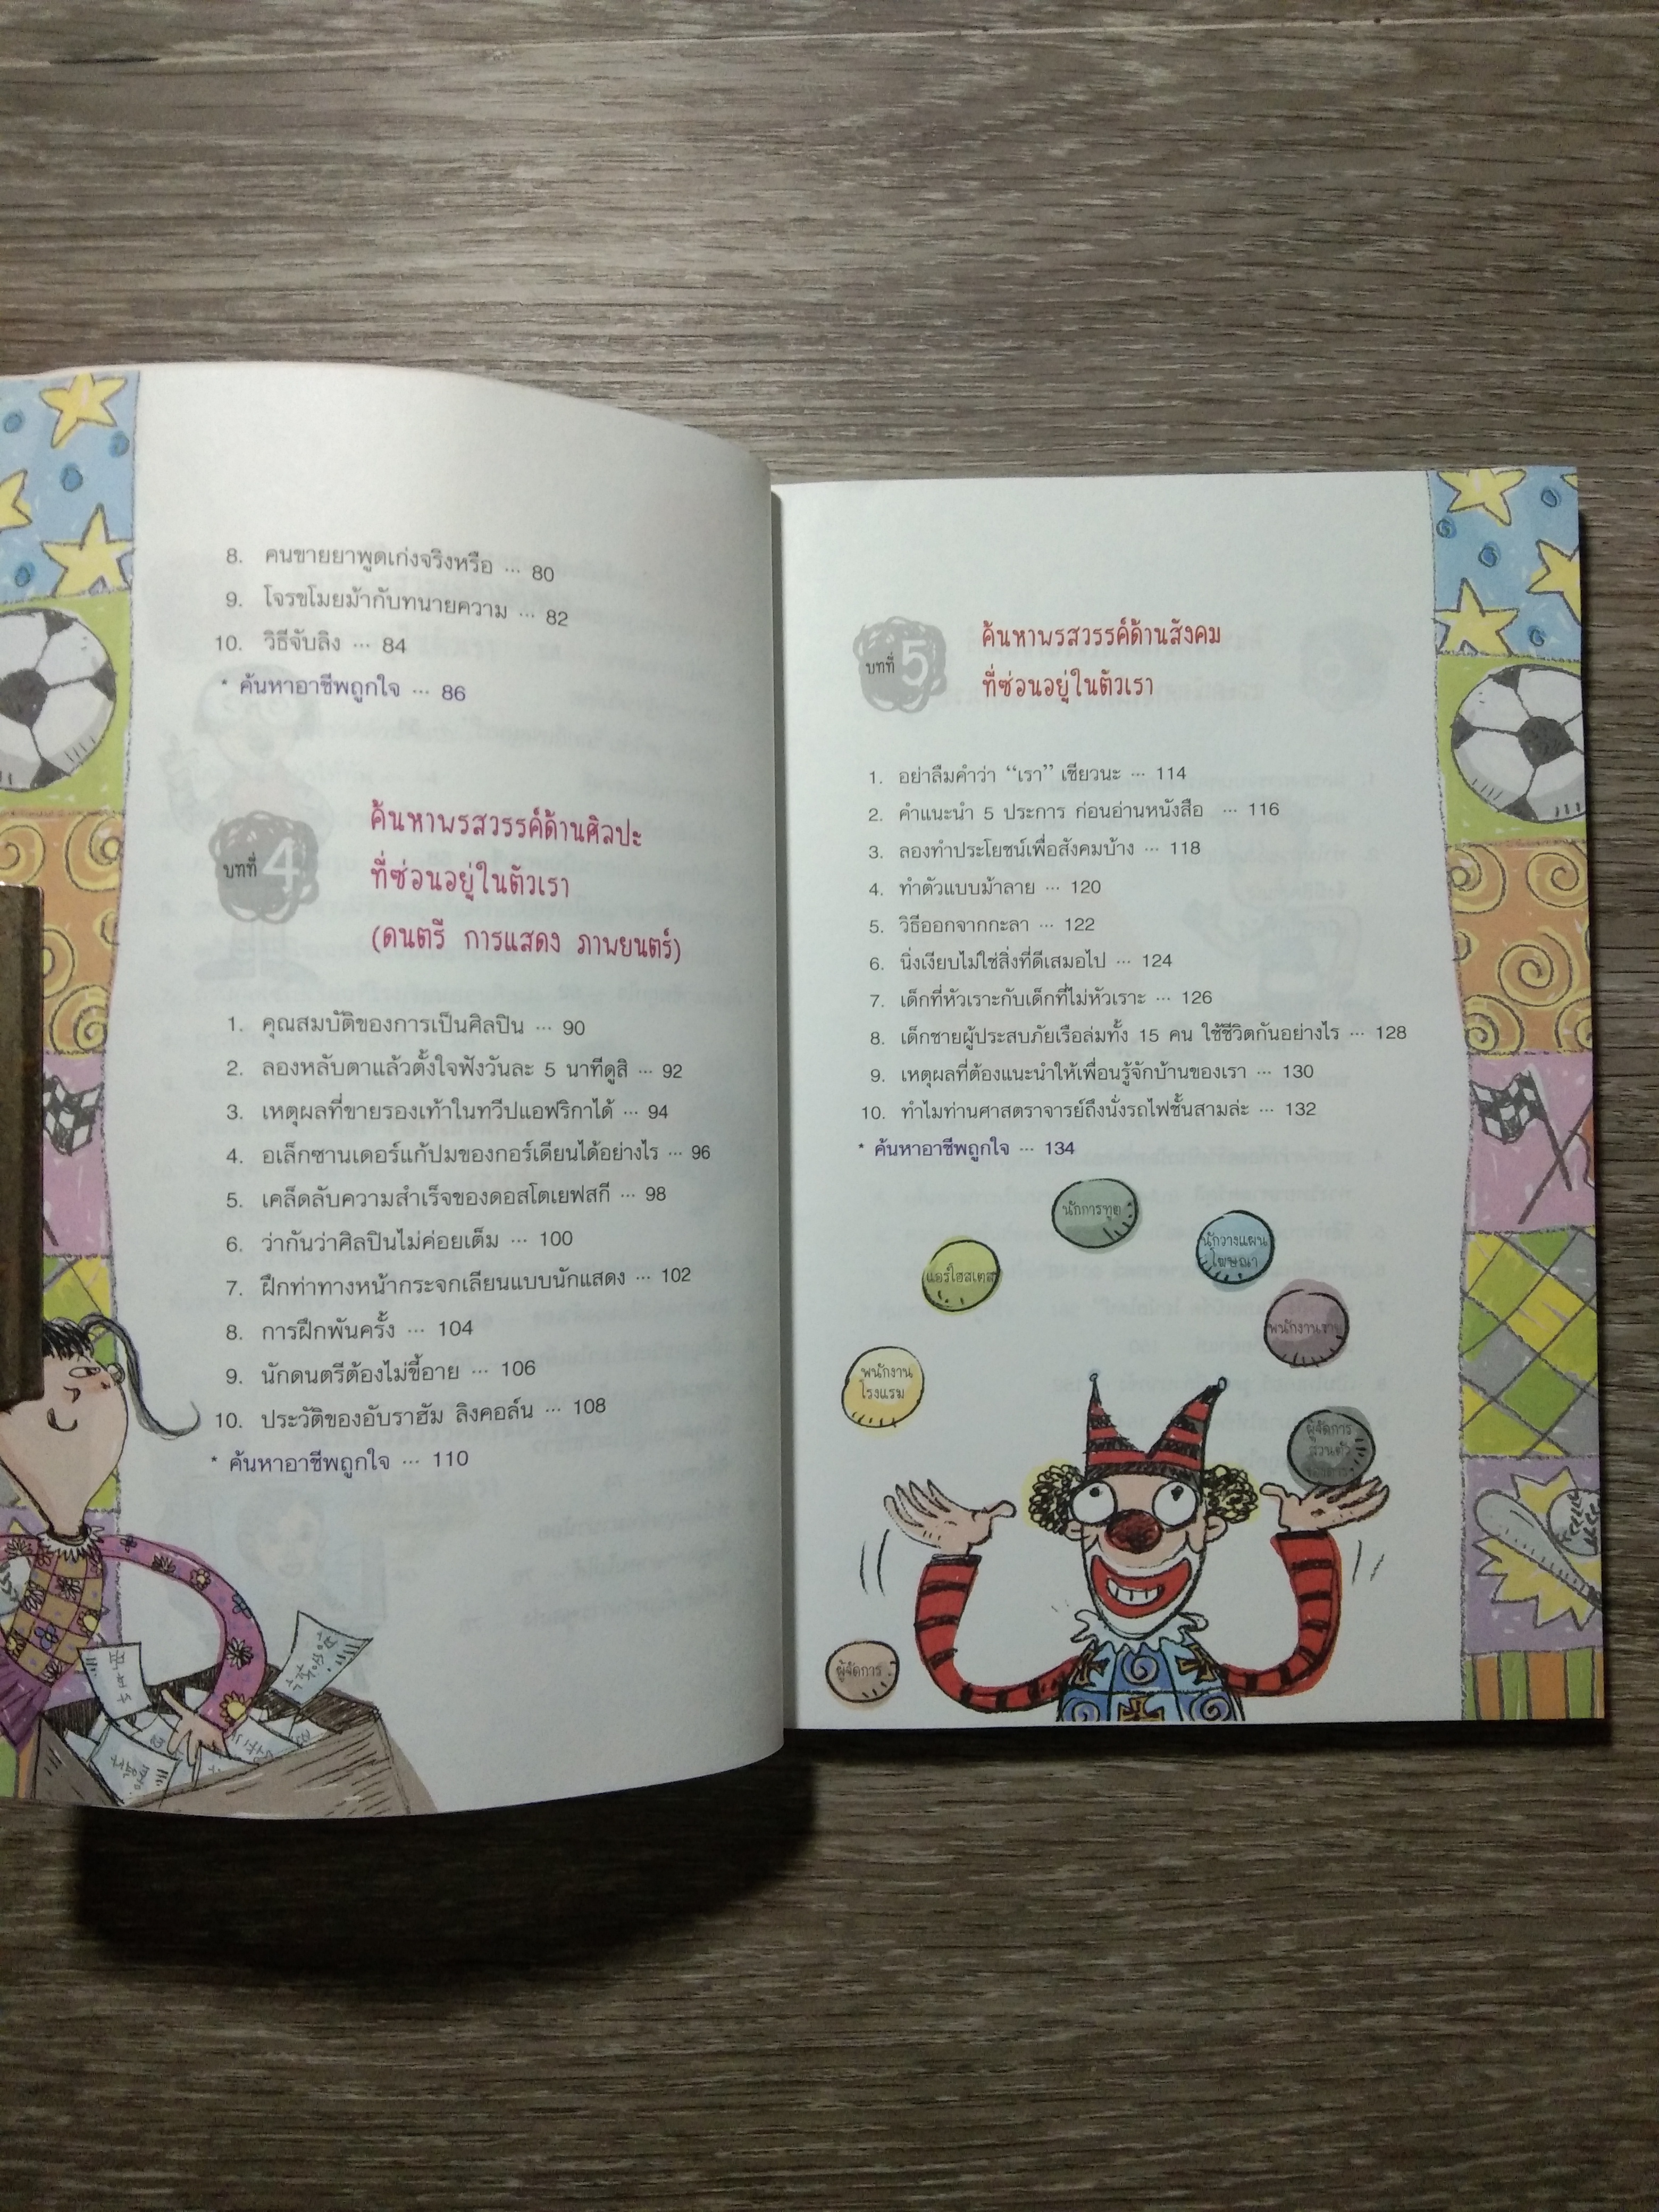 8. คนขายยาพูดเก่งจริงหรือ ... 80
9. โจรขโมยม้ากับทนายความ ... 82
10. วิธีจับลิง ... 84
* ค้นหาอาชีพถูกใจ ... 86
บทที่ 4
ค้นหาพรสวรรค์ด้านศิลปะ
ที่ซ่อนอยู่ในตัวเรา
(ดนตรี การแสดง ภาพยนตร์)
1. คุณสมบัติของการเป็นศิลปิน ... 90
2. ลองหลับตาแล้วตั้งใจฟังวันละ 5 นาทีดูสิ ... 92
3. เหตุผลที่ขายรองเท้าในทวีปแอฟริกาได้ ... 94
4. อเล็กซานเดอร์แก้ปมของกอร์เดียนได้อย่างไร ... 96
5. เคล็ดลับความสำเร็จของดอสโตเยฟสกี ... 98
6. ว่ากันว่าศิลปินไม่ค่อยเต็ม ... 100
7. ฝึกท่าทางหน้ากระจกเลียนแบบนักแสดง ... 102
8. การฝึกพันครั้ง ... 104
9. นักดนตรีต้องไม่ขี้อาย ... 106
10. ประวัติของอับราฮัม ลิงคอล์น ... 108
* ค้นหาอาชีพถูกใจ ... 110
บทที่ 5
ค้นหาพรสวรรค์ด้านสังคม
ที่ซ่อนอยู่ในตัวเรา
1. อย่าลืมคำว่า “เรา” เชียวนะ ... 114
2. คำแนะนำ 5 ประการ ก่อนอ่านหนังสือ ... 116
3. ลองทำประโยชน์เพื่อสังคมบ้าง ... 118
4. ทำตัวแบบม้าลาย ... 120
5. วิธีออกจากกะลา ... 122
6. นิ่งเงียบไม่ใช่สิ่งที่ดีเสมอไป ... 124
7. เด็กที่หัวเราะกับเด็กที่ไม่หัวเราะ ... 126
8. เด็กชายผู้ประสบภัยเรือล่มทั้ง 15 คน ใช้ชีวิตกันอย่างไร ... 128
9. เหตุผลที่ต้องแนะนำให้เพื่อนรู้จักบ้านของเรา ... 130
10. ทำไมท่านศาสตราจารย์ถึงนั่งรถไฟชั้นสามล่ะ ... 132
* ค้นหาอาชีพถูกใจ ... 134
นักการทูต
นักวางแผน
โฆษณา
แอร์โฮสเตส
พนักงานขาย
พนักงาน
โรงแรม
ผู้จัดการ
ส่วนตัว
ผู้จัดการ